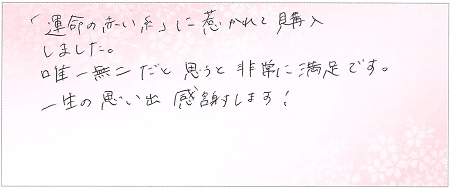 「運命の赤い糸」に惹かれて購入
しました。
唯一無二だと思うと非常に満足です。
一生の思い出感謝します!